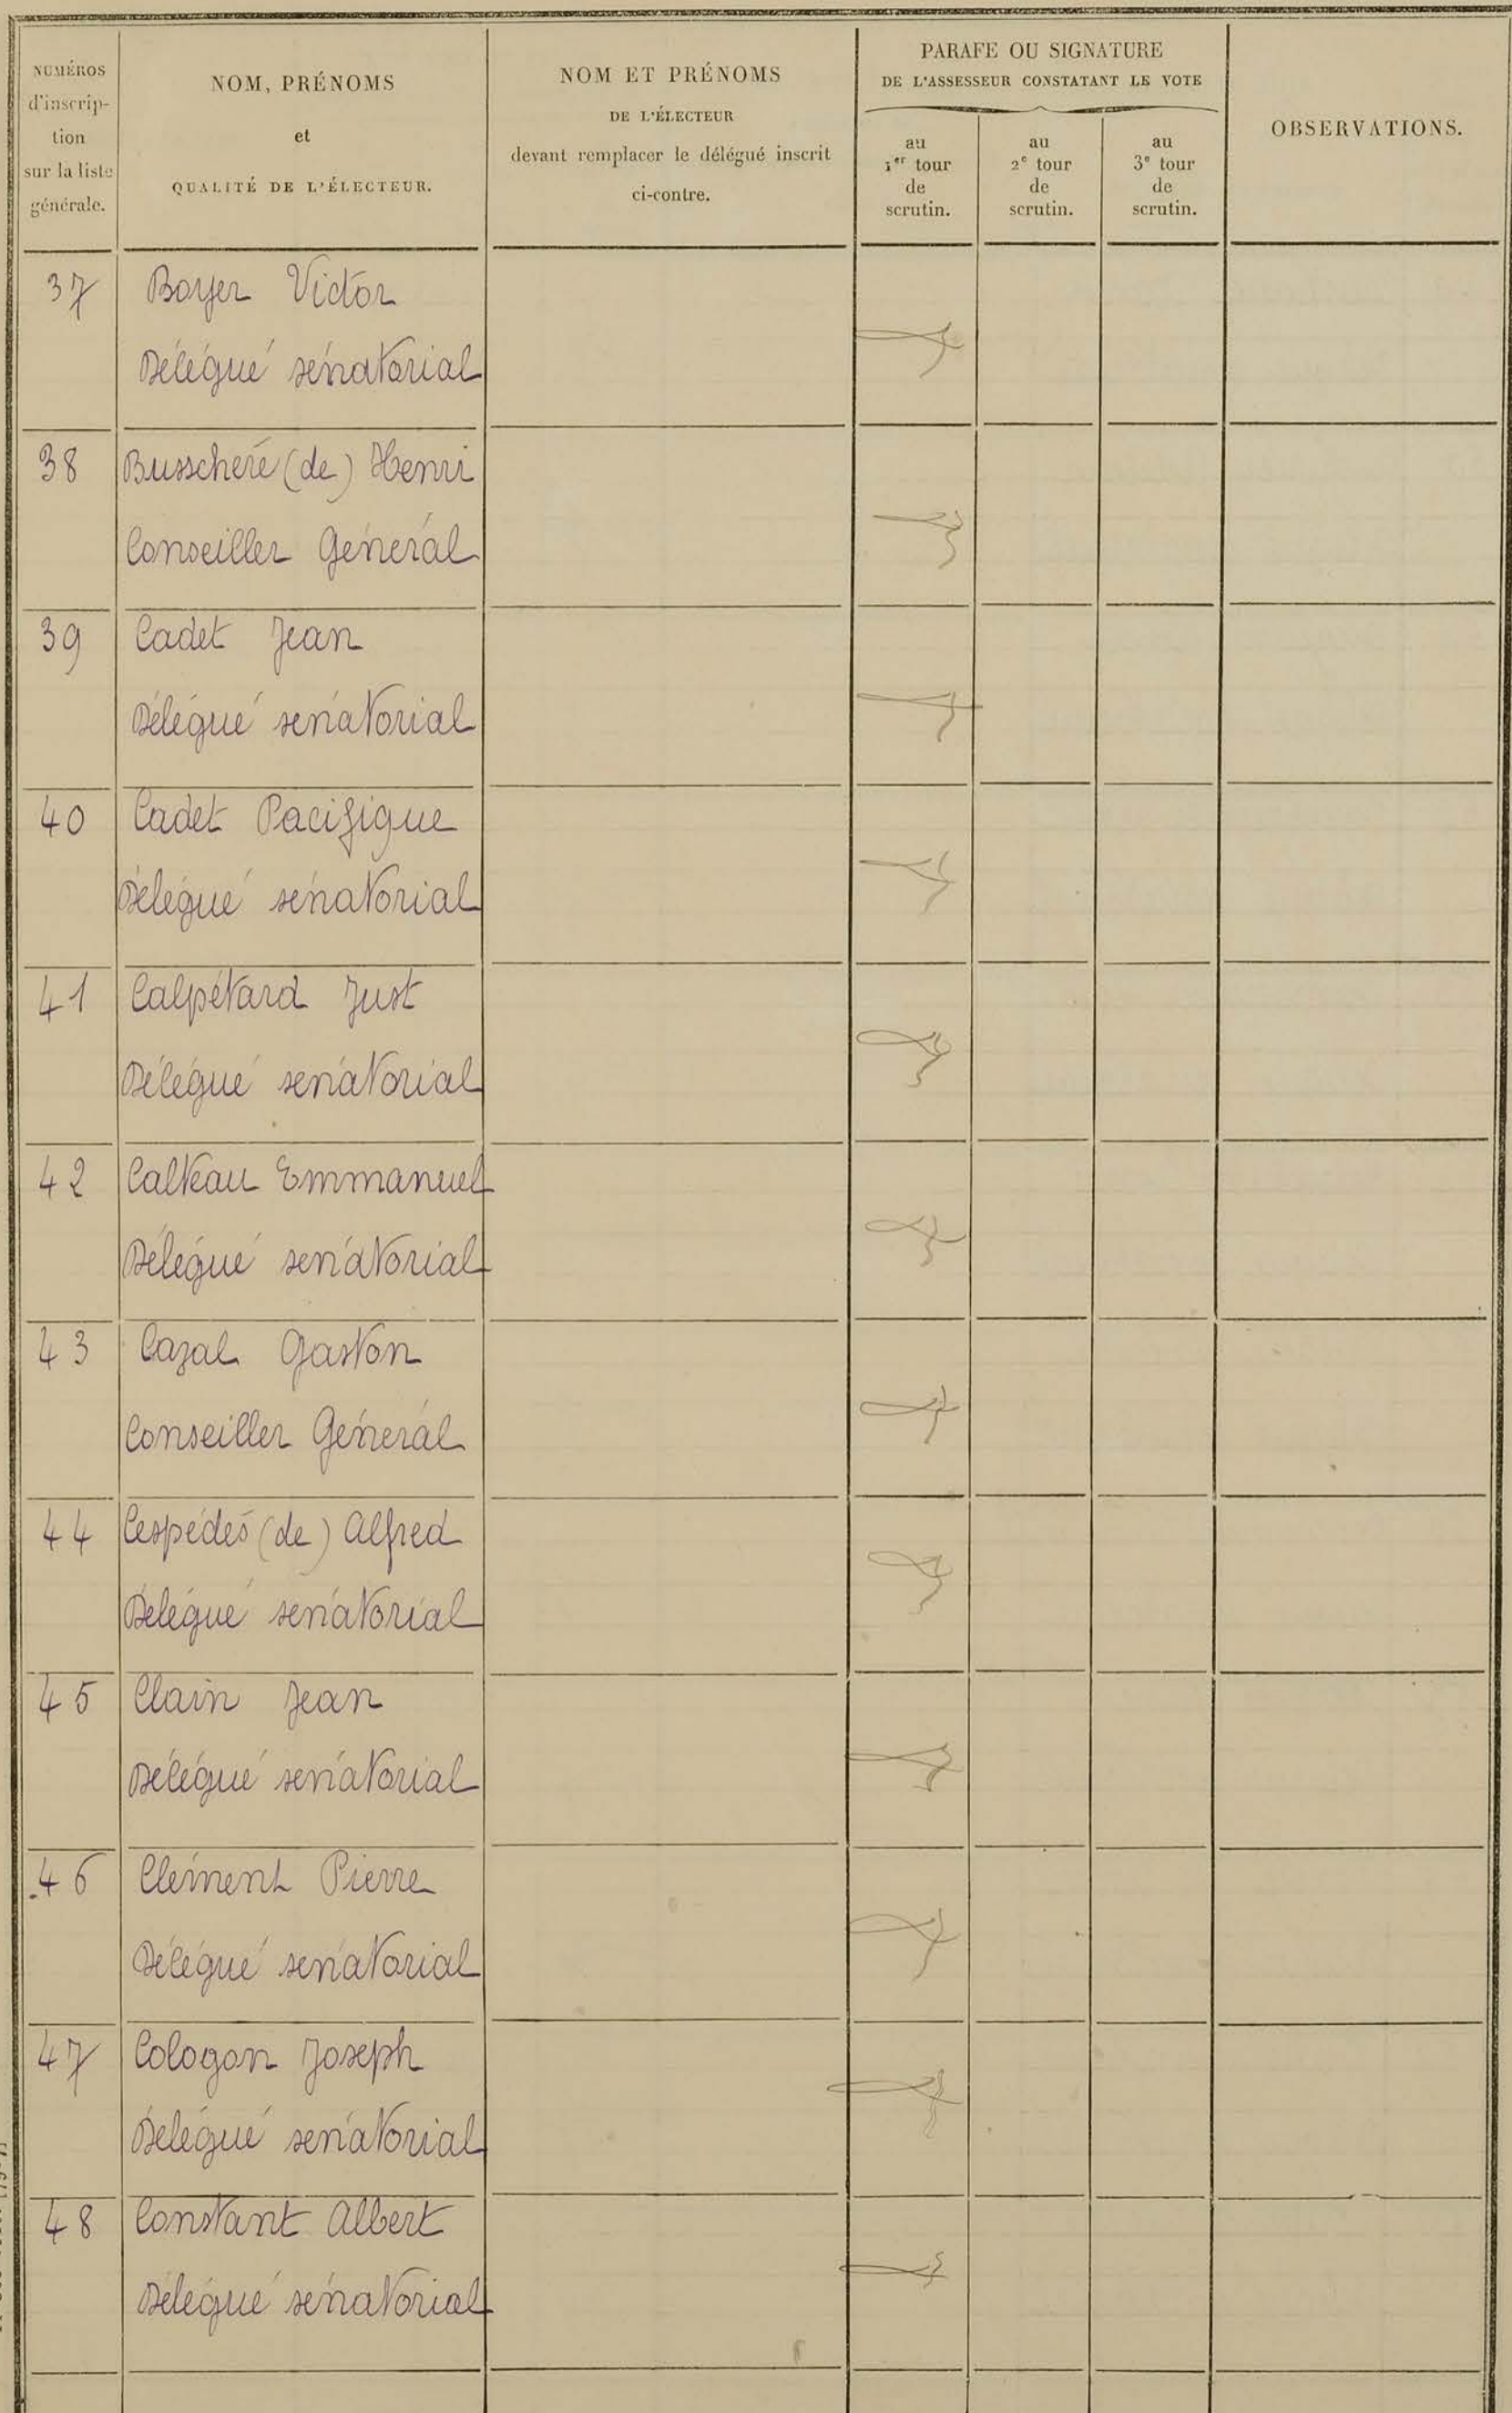 NUMÉROS
d'inscrip-
tion
sur la liste
générale.
NOM, PRÉNOMS
et
QUALITÉ DE L'ÉLECTEUR.
NOM ET PRÉNOMS
DE L'ÉLECTEUR
devant remplacer le délégué inscrit
ci-contre.
PARAFE OU SIGNATURE
DE L'ASSESSEUR CONSTATANT LE VOTE
au
1er tour
de
scrutin.
au
2e tour
de
scrutin.
au
3e tour
de
scrutin.
OBSERVATIONS.
37 Boyer Victor
Délégué sénatorial
38 Busschère (de) Henri
Conseiller Général
39 Cadet Jean
Délégué sénatorial
40 Cadet Pacifique
Délégué sénatorial
41 Calpétard Just
Délégué sénatorial
42 Calteau Emmanuel
Délégué sénatorial
43 Cazal Gaston
Conseiller Général
44 Cespédès (de) Alfred
Délégué sénatorial
45 Clain Jean
Délégué sénatorial
46 Clément Pierre
Délégué sénatorial
47 Cologon Joseph
Délégué sénatorial
48 Constant Albert
Délégué sénatorial